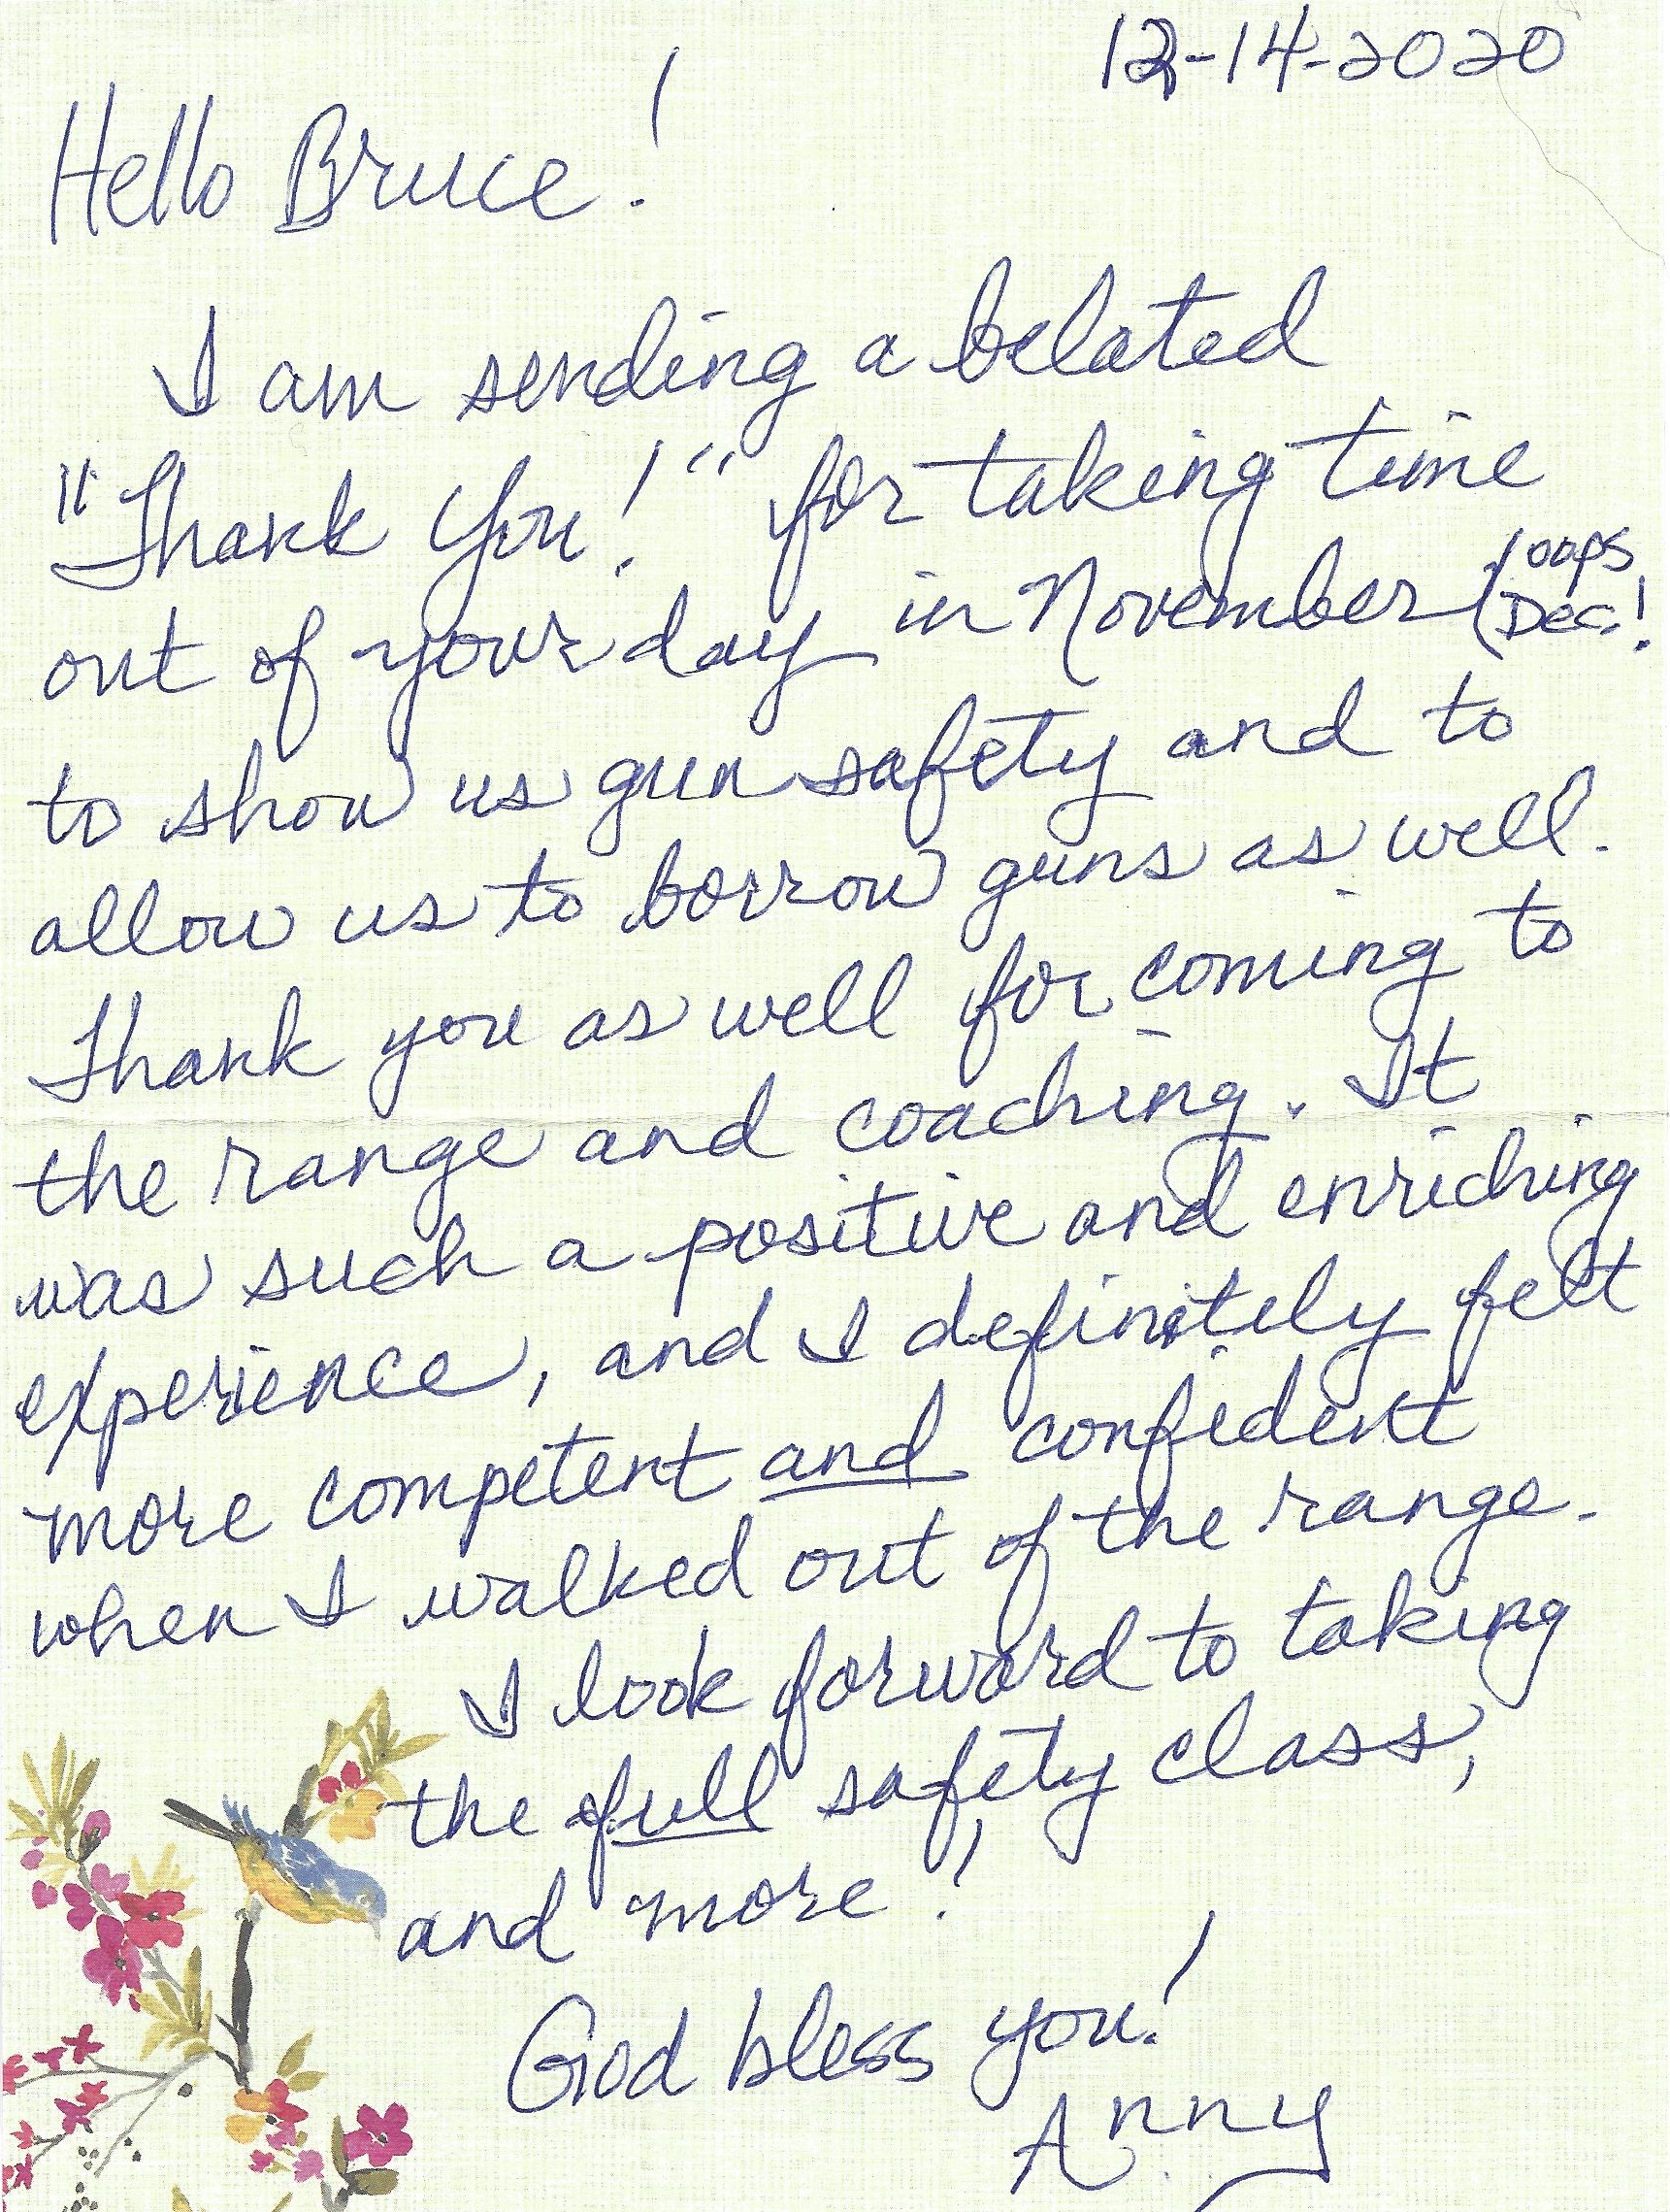 12-14-2020
Hello Bruce!
I am sending a belated
"Thank You!" for taking time
out of your day in November (oops Dec.!
to show us gun safety and to
allow us to borrow guns as well.
Thank you as well for coming to
the range and coaching. It
was such a positive and enriching
experience, and I definitely felt
more competent and confident
when I walked out of the range.
I look forward to taking
the full safety class,
and more!
God bless you!
Anny